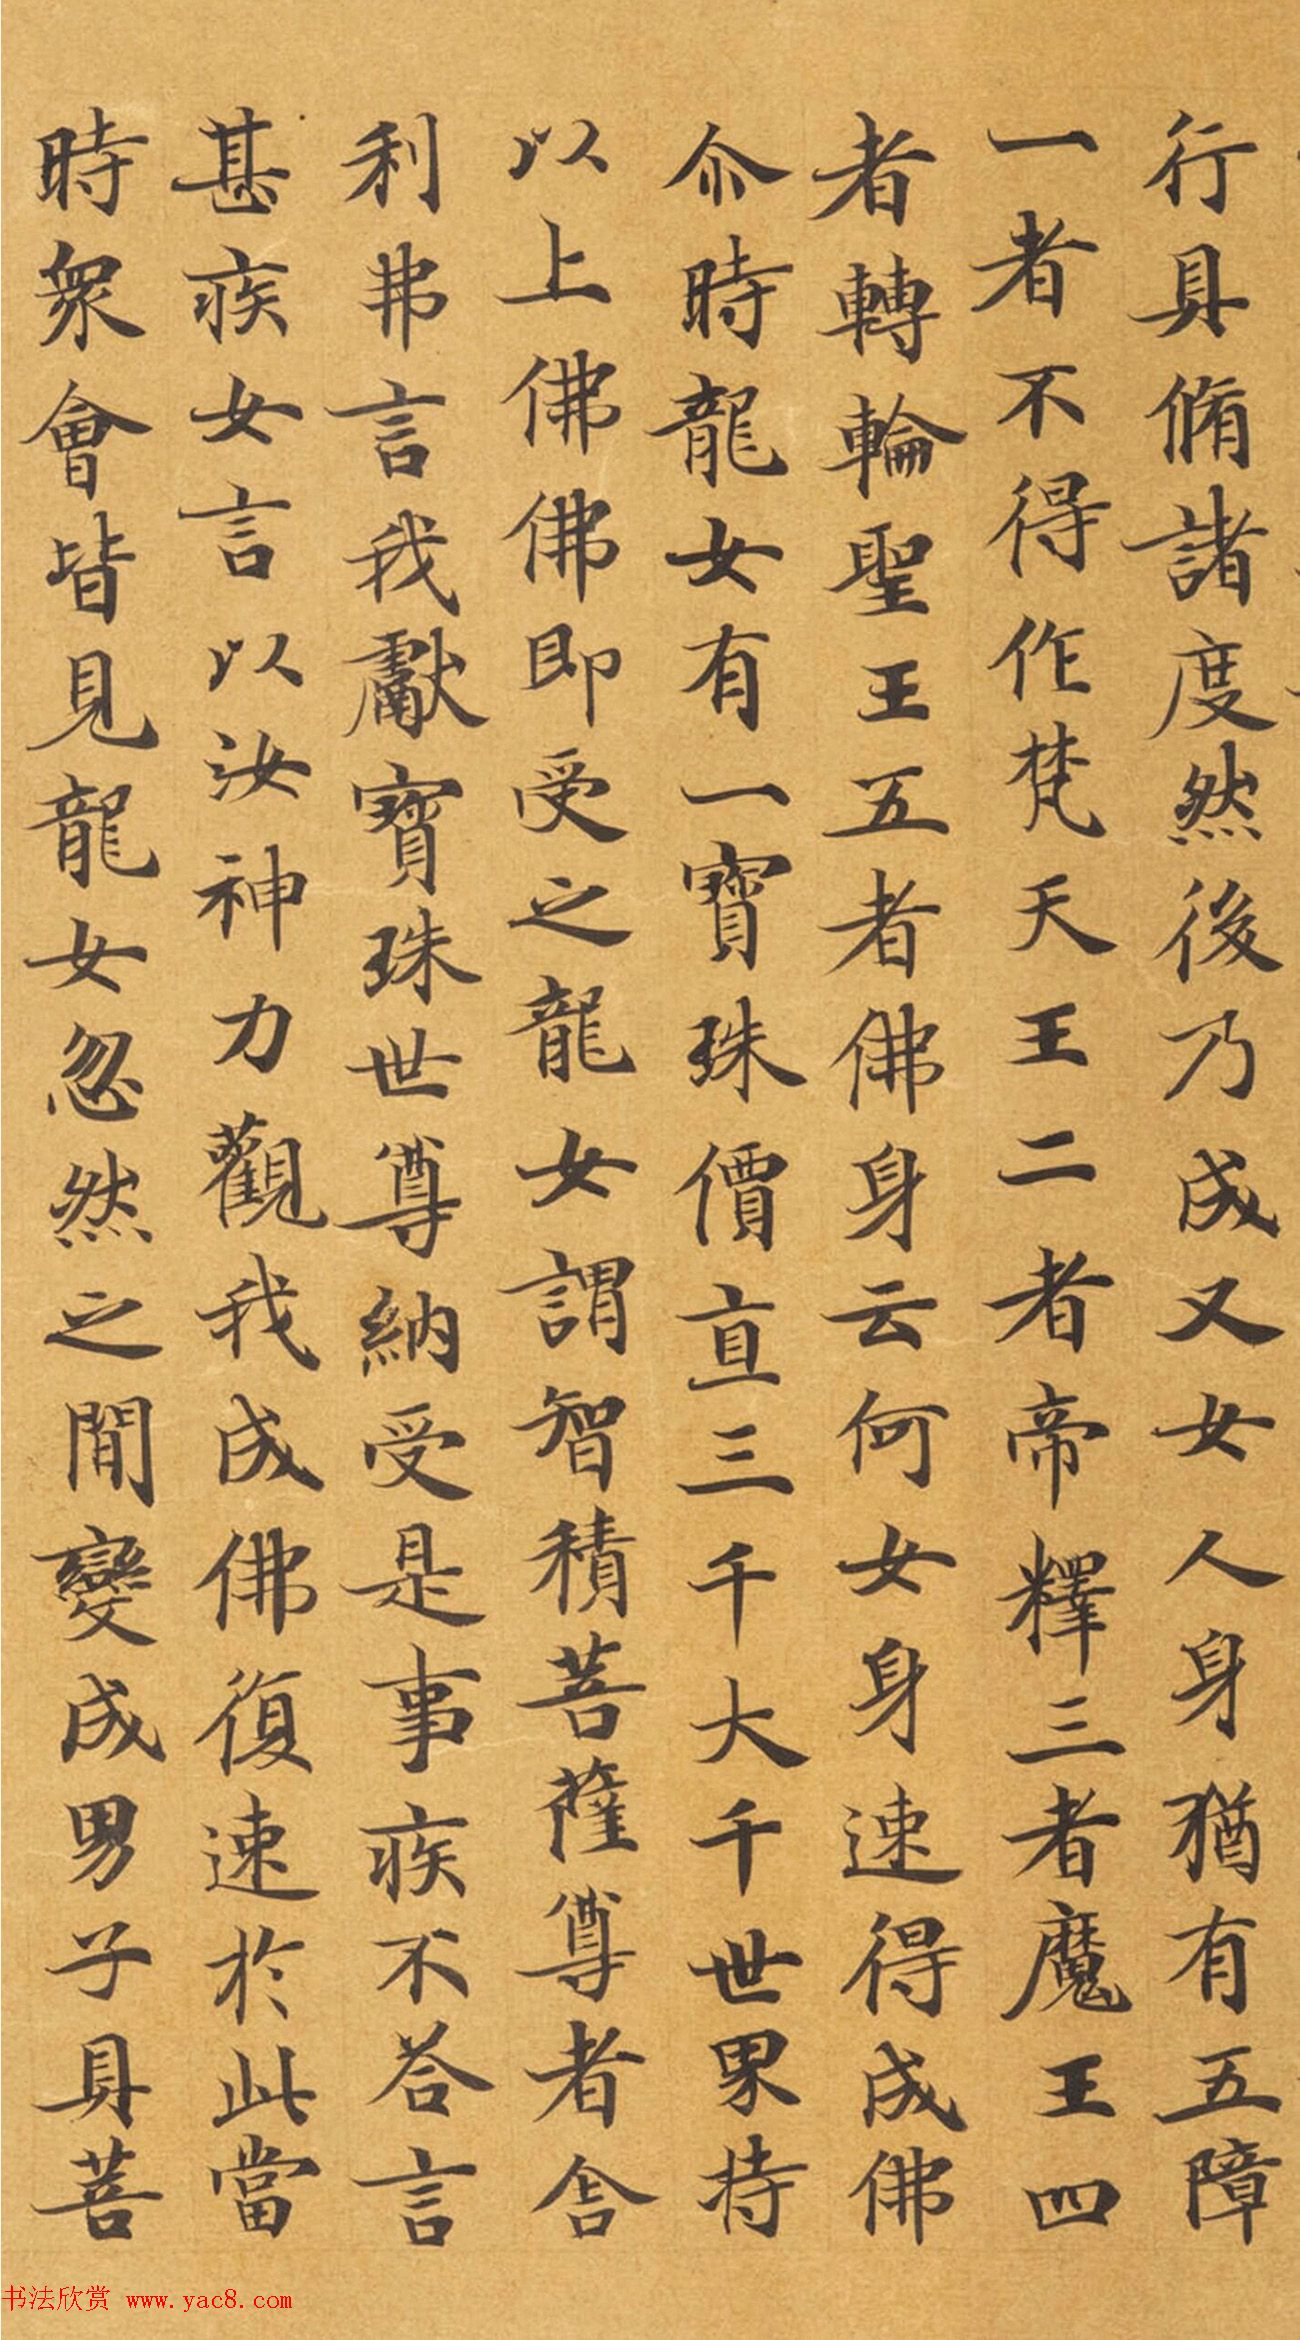 行具脩諸度然後乃成又女人身猶有五障
一者不得作梵天王二者帝釋三者魔王四
者轉輪聖王五者佛身云何女身速得成佛
尒時龍女有一寶珠價直三千大千世界持
以上佛佛即受之龍女謂智積菩薩尊者舍
利弗言我獻寶珠世尊納受是事疾不答言
甚疾女言以汝神力觀我成佛復速於此當
時眾會皆見龍女忽然之間變成男子具菩
书法欣赏 www.yac8.com